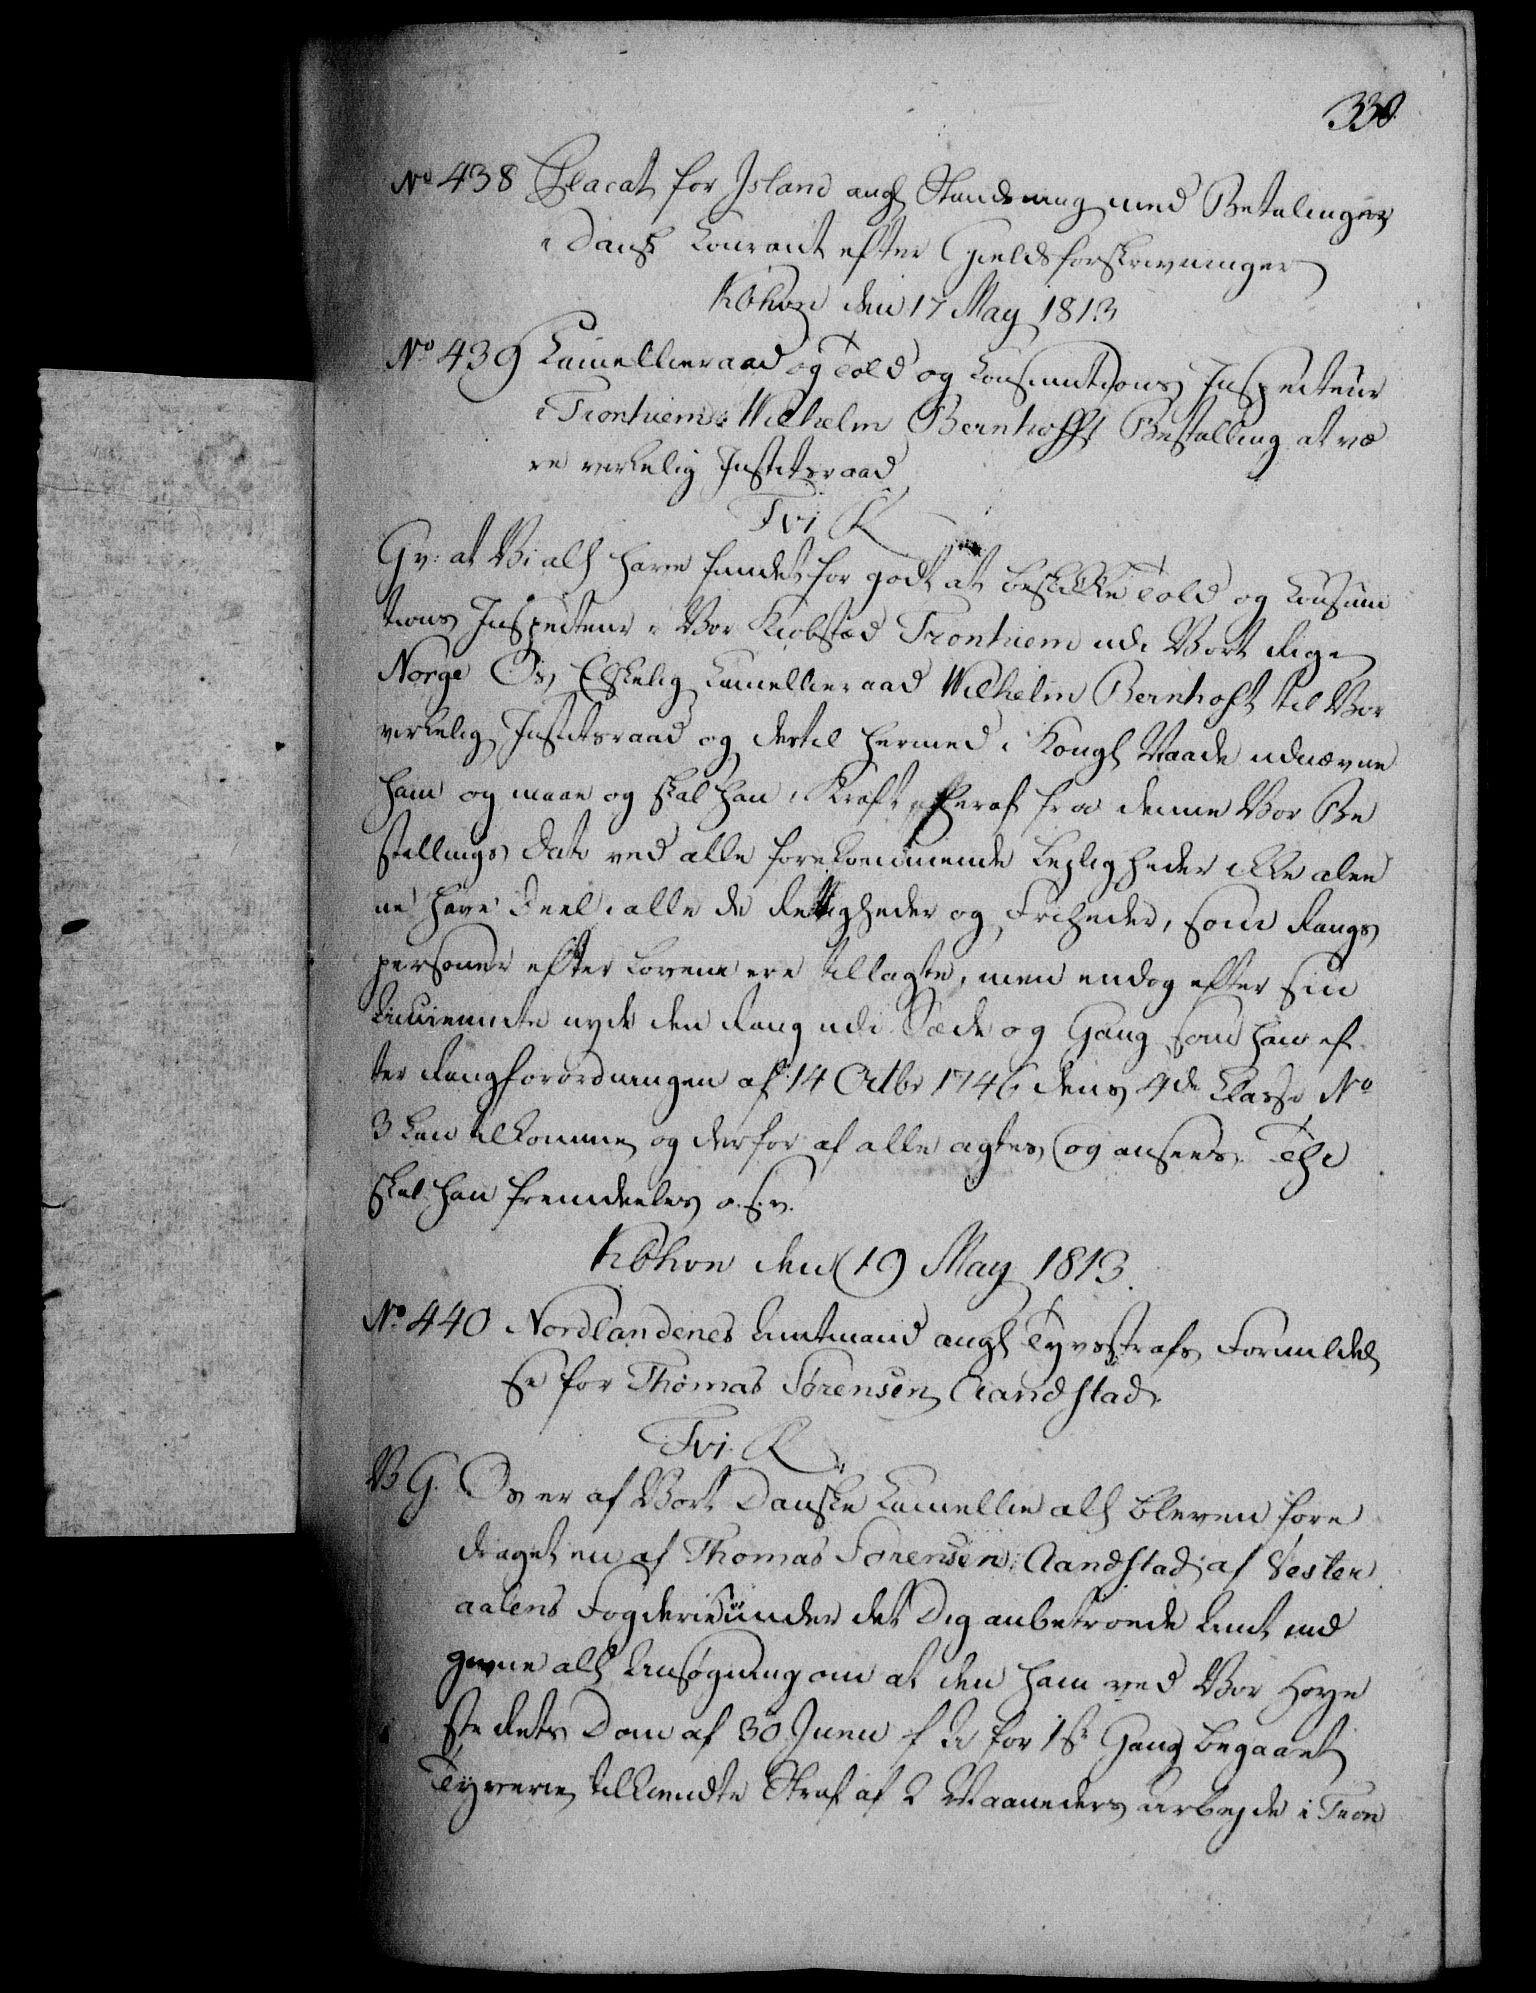 330.
No 438 Placat for Island angl Standsning med Betalinger
i Dansk Courant efter Gieldsforskrivninger
Kbhvn den 17 May 1813
No 439 Cancellieraad og Told og Consumtions Inspecteur
i Tronhiem Wilhelm Bernhofft Bestalling at væ
re virkelig Justitsraad
Fvi R
Gv: at Vi allh have fundet for godt at beskikke Told og Consum
tions Inspecteur i Vor Kiøbstad Tronhiem udi Vort Rige
Norge Os Elskelig Cancellieraad Wilhelm Bernhoft til Vor
virkelig Justitsraad og dertil hermed i Kongl Naade udnævne
ham og maae og skal han i Kraft heraf fra denne Vor Be
stallings Dato ved alle forekommende Leyligheder ikke alee
ne have Deel i alle de Rettigheder og Friheder, som Rangs
personer efter Lovene ere tillagte, men endog efter sin
Anciennite nyde den Rang udi Sæde og Gang som han ef
ter Rangforordningen af 14 Octbr 1746 dens 4de Classe No
3 kan tilkomme og derfor af alle agtes og ansees. Thi
skal han fremdeeles o. s. v.
Kbhvn den 19 May 1813.
No 440 Nordlandenes Amtmand angl Tyvsstrafs Formildel
se for Thomas Sørensen Aandstad.
Fvi. R.
V G. Os er af Vort Danske Cancellie allh bleven fore
draget en af Thomas Sørensen Aandstad af Vester
aalens Fogderie under det Dig anbetroede Amt ind
given allh Ansøgning om at den ham ved Vor Høye
ste Rets Dom af 30 Junii f A for 1ste Gang begaaet
Tyverie tilkiendte Straf af 2 Maaneders Arbejde i Tron